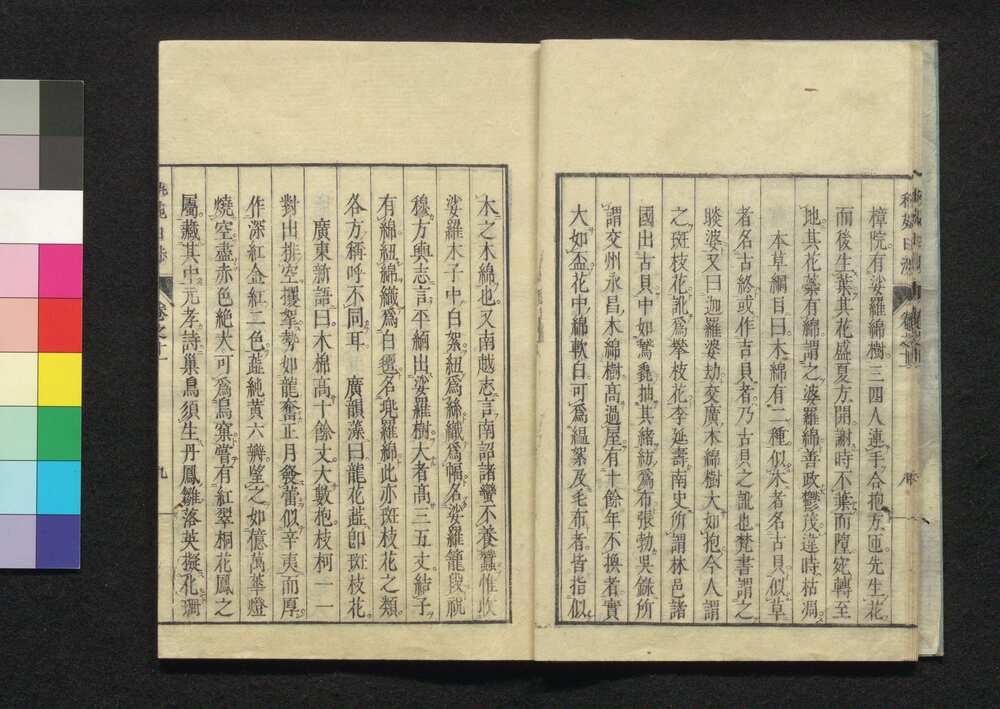 樟院有娑羅綿樹三四人連手合抱方匝先生花
而後生葉其花盛夏方開謝時不葉而隕宛轉至
地其花蘂有綿謂之娑羅綿善政鬱茂違時枯凋
本草綱目曰木綿有二種似木者名古貝似草
者名古終或作吉貝者乃古貝之訛也梵書謂之
睒婆又曰迦羅婆劫交廣木綿樹大如抱今人謂
之斑枝花訛爲攀枝花李延壽南史所謂林邑諸
國出古貝中如鵞毳抽其緒紡爲布張勃吳錄所
謂交州永昌木綿樹高過屋有十餘年不換者實
大如盃花中綿軟白可爲縕絮及毛布者皆指似
木之木綿也又南越志言南詔諸蠻不養蠶惟收
娑羅木子中白絮紉爲絲織爲幅名娑羅籠段祝
穆方輿志言平緬出娑羅樹大者高三五丈結子
有綿紉綿織爲白氎名兠羅綿此亦斑枝花之類
各方稱呼不同耳 廣韻藻曰龍花蘂卽斑枝花
廣東新語曰木棉高十餘丈大數抱枝柯一一
對出排空攫挐勢如龍奮正月發蕾似辛夷而厚
作深紅金紅二色蘂純黄六瓣望之如億萬華燈
燒空盡赤色絶大可爲鳥窠嘗有紅翠桐花鳳之
屬藏其中元孝詩巢鳥須生丹鳳雛落英擬化珊
卷之二
九